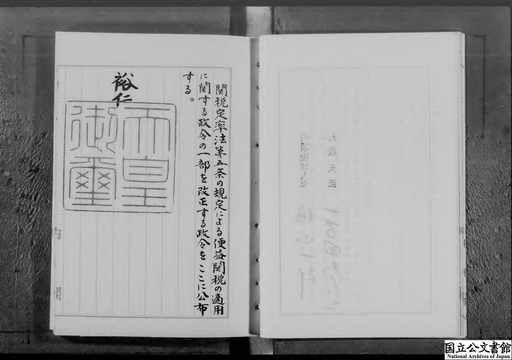 関税定率法第五条の規定による便益関税の適用
に関する政令の一部を改正する政令をここに公布
する。
裕仁
天皇
御璽
国立公文書館
National Archives of Japan